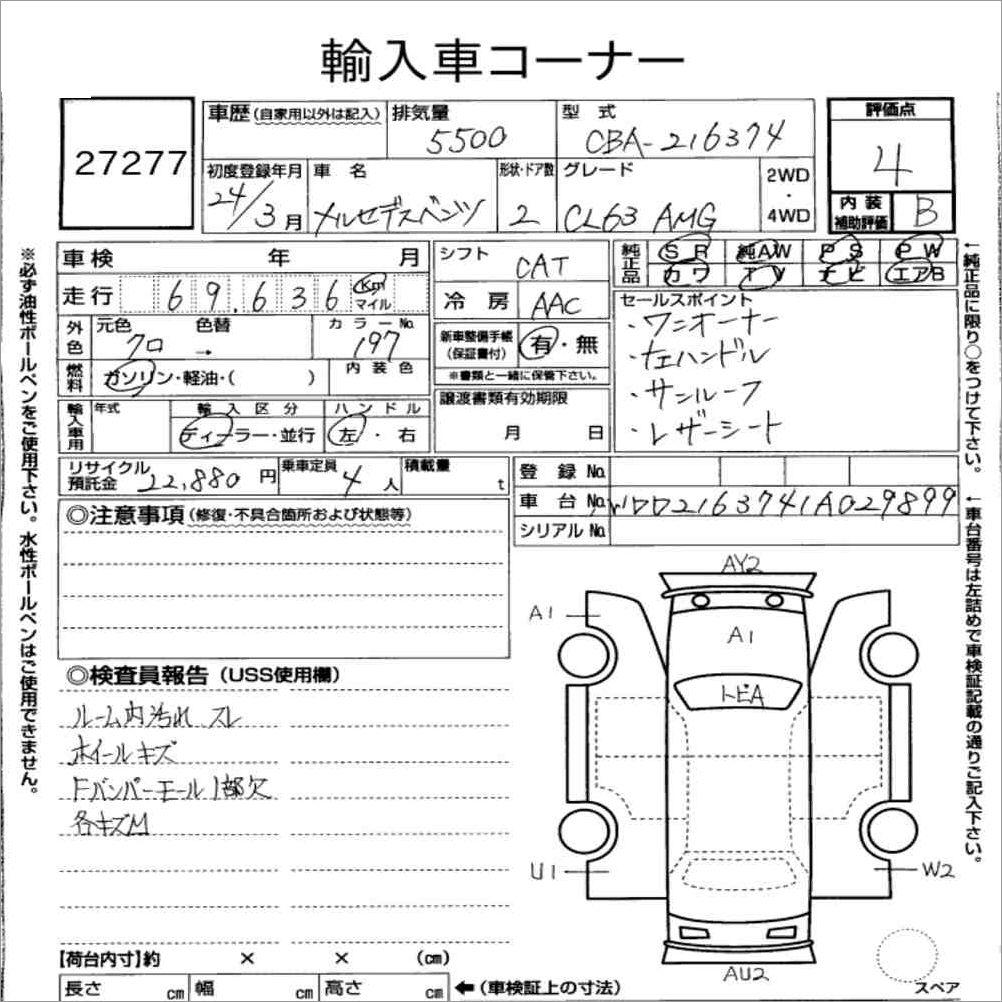 輸入車コーナー
27277
車歴(自家用以外は記入) 排気量 5500 型式 CBA-216374 評価点 4
初度登録年月 24/3月 車名 メルセデスベンツ 形状・ドア数 2 グレード CL63 AMG 2WD・4WD
内装補助評価 B
車検 年 月 シフト CAT 純正品 SR 純AW PS PW
走行 69.636 Km マイル 冷房 AAC カワ TV ナビ エアB
外色 元色 クロ 色替 → カラーNo. 197 新車整備手帳(保証書付) 有・無
※書類と一緒に保管下さい。
燃料 ガソリン・軽油・( ) 内装色
セールスポイント
・ワンオーナー
・左ハンドル
・サンルーフ
・レザーシート
輸入車用 年式 輸入区分 ハンドル 譲渡書類有効期限
ディーラー・並行 左・右 月 日
リサイクル預託金 22,880円 乗車定員 4人 積載量 t 登録No.
車台No. WDD2163741A029899
シリアルNo.
◎注意事項(修復・不具合箇所および状態等)
◎検査員報告(USS使用欄)
ルーム内汚れ スレ
ホイールキズ
Fバンパーモール1部欠
各キズM
AY2
A1
A1
トビA
U1
W2
AU2
スペア
【荷台内寸】約 × × (cm)
長さ cm 幅 cm 高さ cm ←(車検証上の寸法)
※必ず油性ボールペンをご使用下さい。水性ボールペンはご使用できません。
←純正品に限り○をつけて下さい。
←車台番号は左詰めで車検証記載の通りご記入下さい。